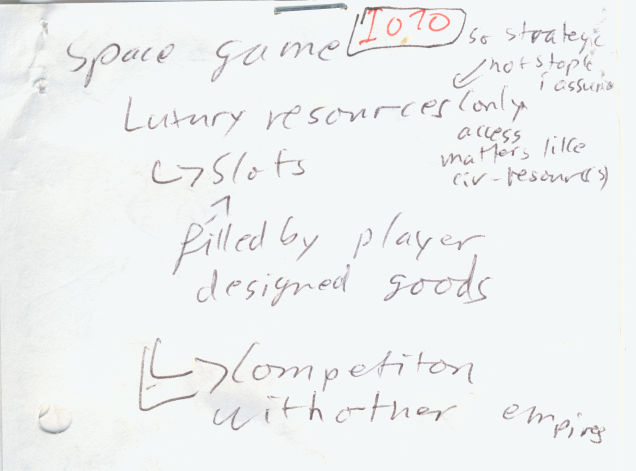 Space game IO10 so strategic
not staple
i assume
Luxury resources (only
access
matters like
civ-resources)
↳ Slots
↑
filled by player
designed goods
↳ Competiton
with other empires